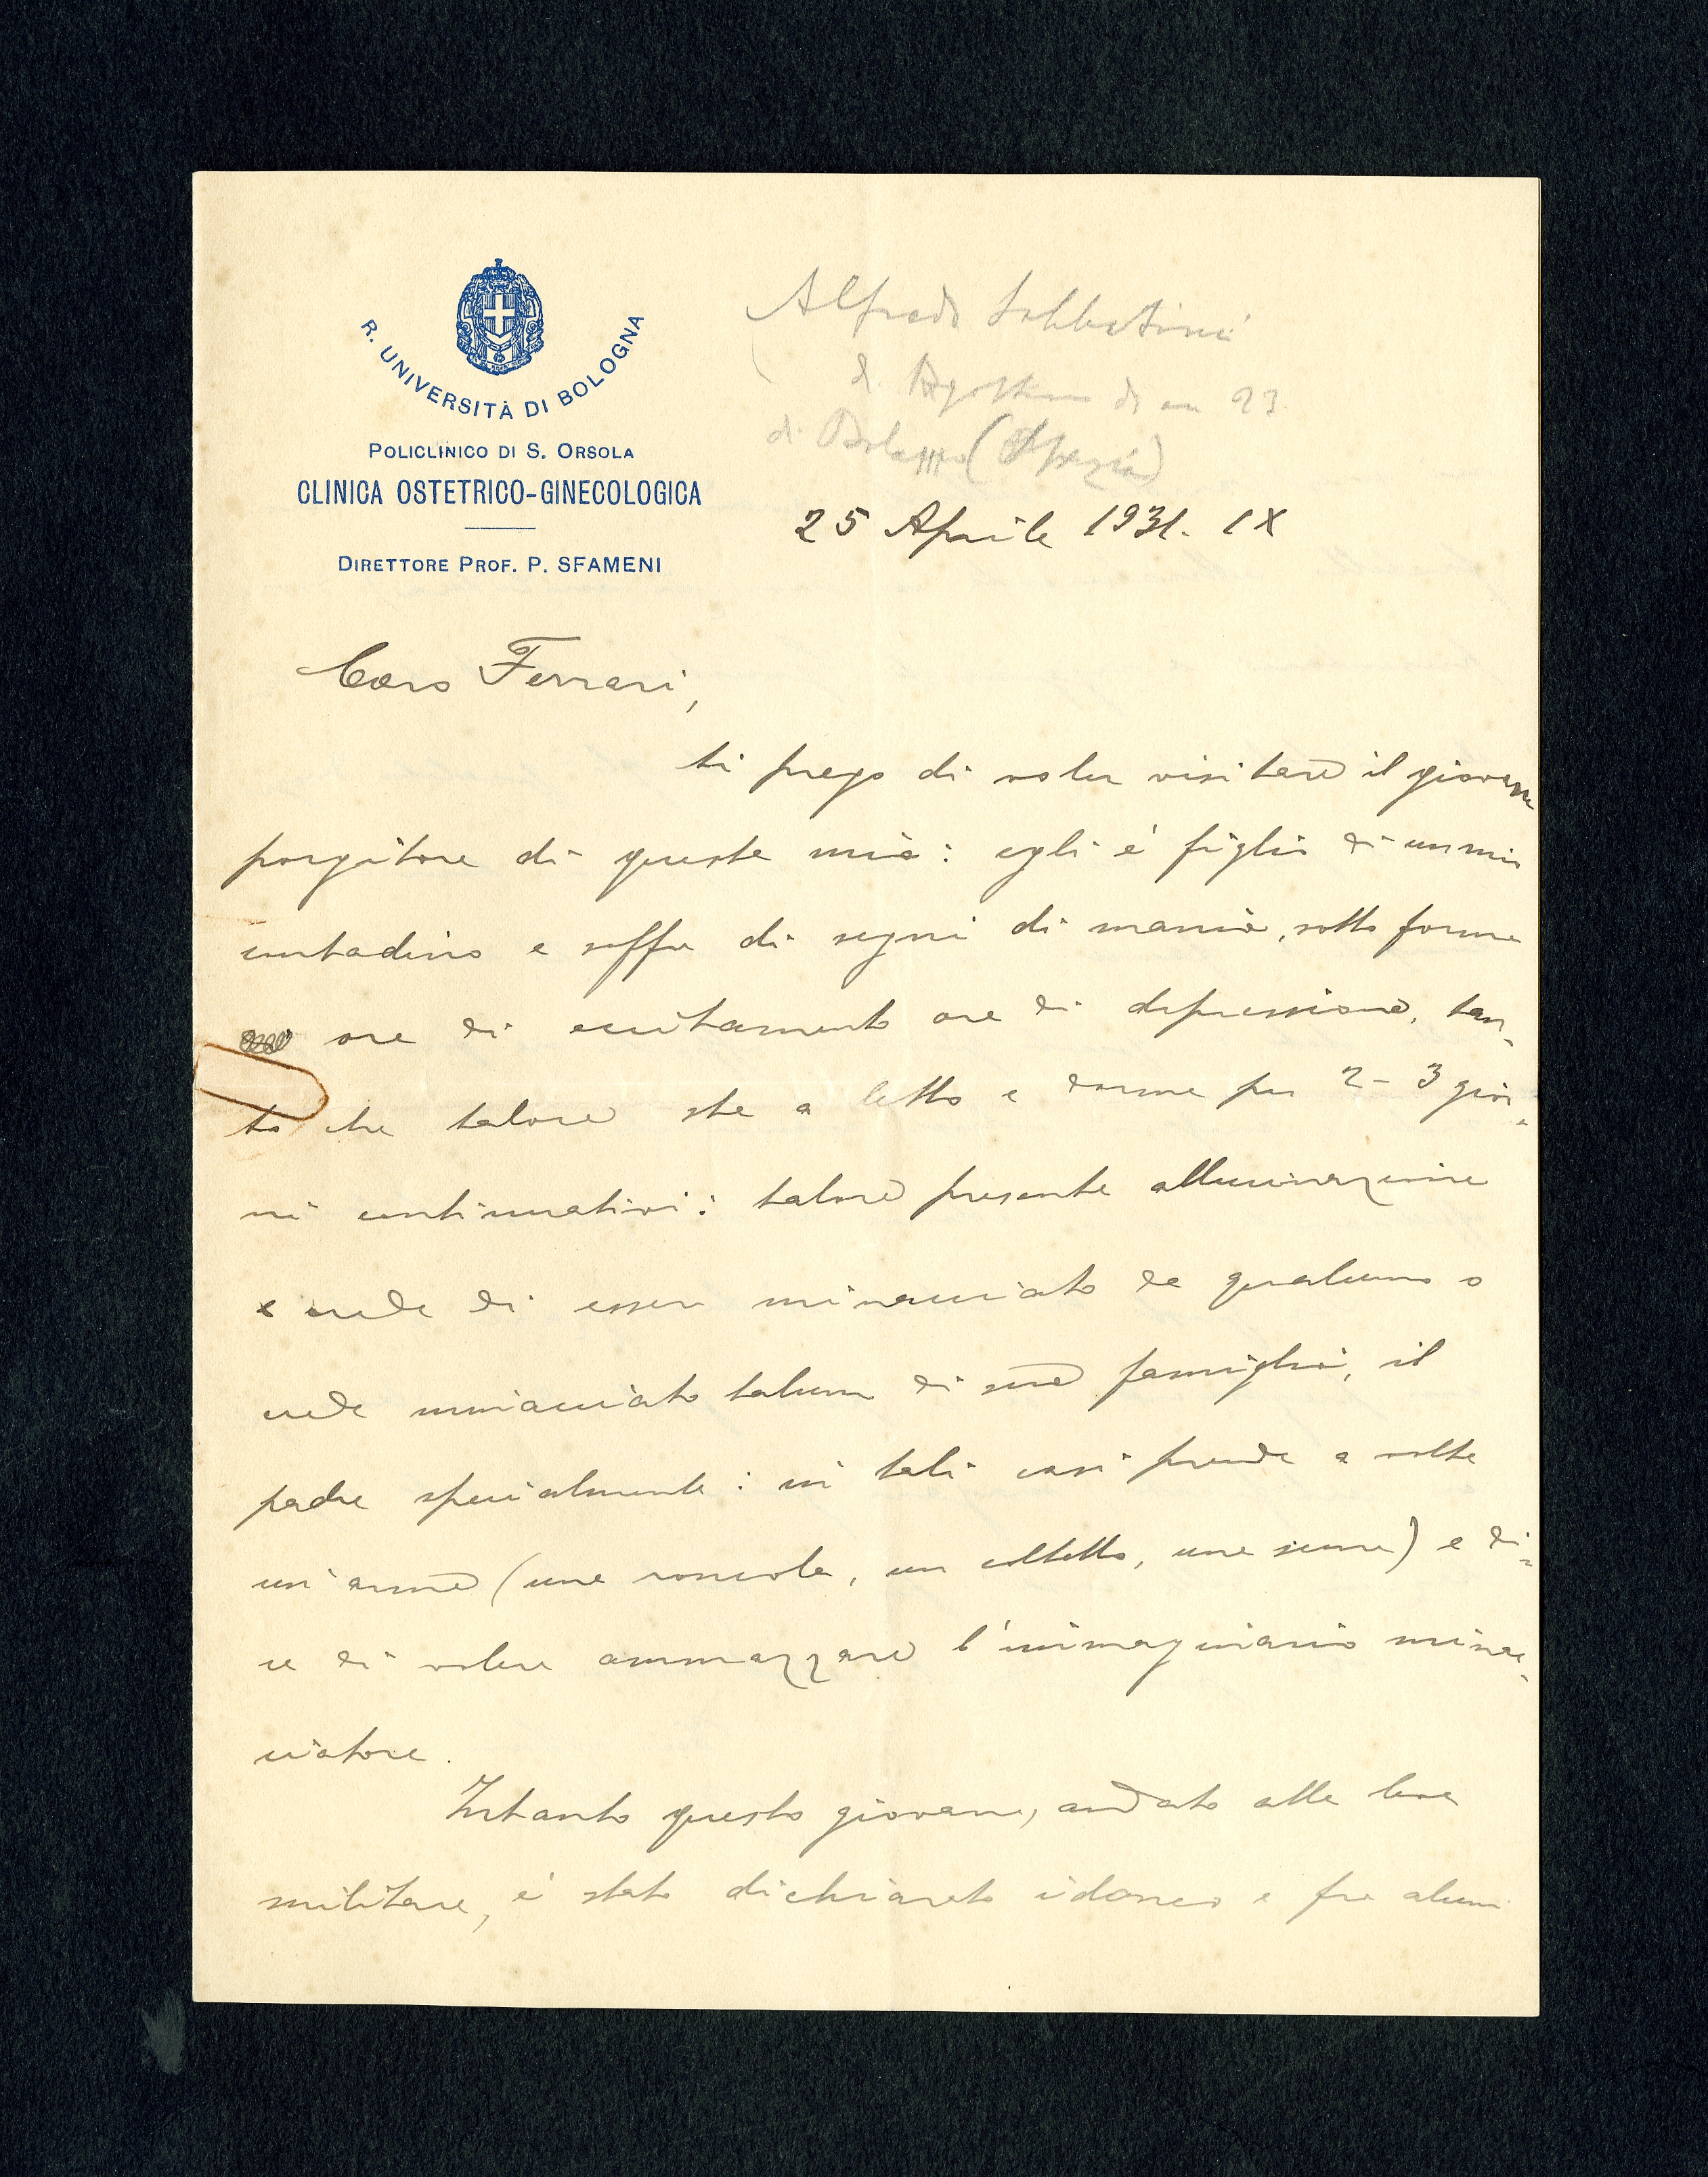 R. UNIVERSITÀ DI BOLOGNA
POLICLINICO DI S. ORSOLA
CLINICA OSTETRICO-GINECOLOGICA
DIRETTORE PROF. P. SFAMENI
Alfredo Sabbatini
di Agostino di an 23.
di
25 Aprile 1931. IX
Caro Ferrari,
ti prego di voler visitare il giovane
porgitore di questa mia: egli è figlio di un mio
contadino e soffre di segni di mania, sotto forma
ora di eccitamento ora di depressione, tan-
to che talora sta a letto e dorme per 2-3 gior-
ni continuativi: talora presenta allucinazione
e crede di esser minacciato da qualcuno o
crede minacciato talun di sua famiglia, il
padre specialmente: in tali casi prende a volte
un'arma (una roncola, un coltello, una scure) e di-
ce di volere ammazzare l'immaginario minac-
ciatore.
Intanto questo giovane, andato alla leva
militare, è stato dichiarato idoneo e fra alcuni